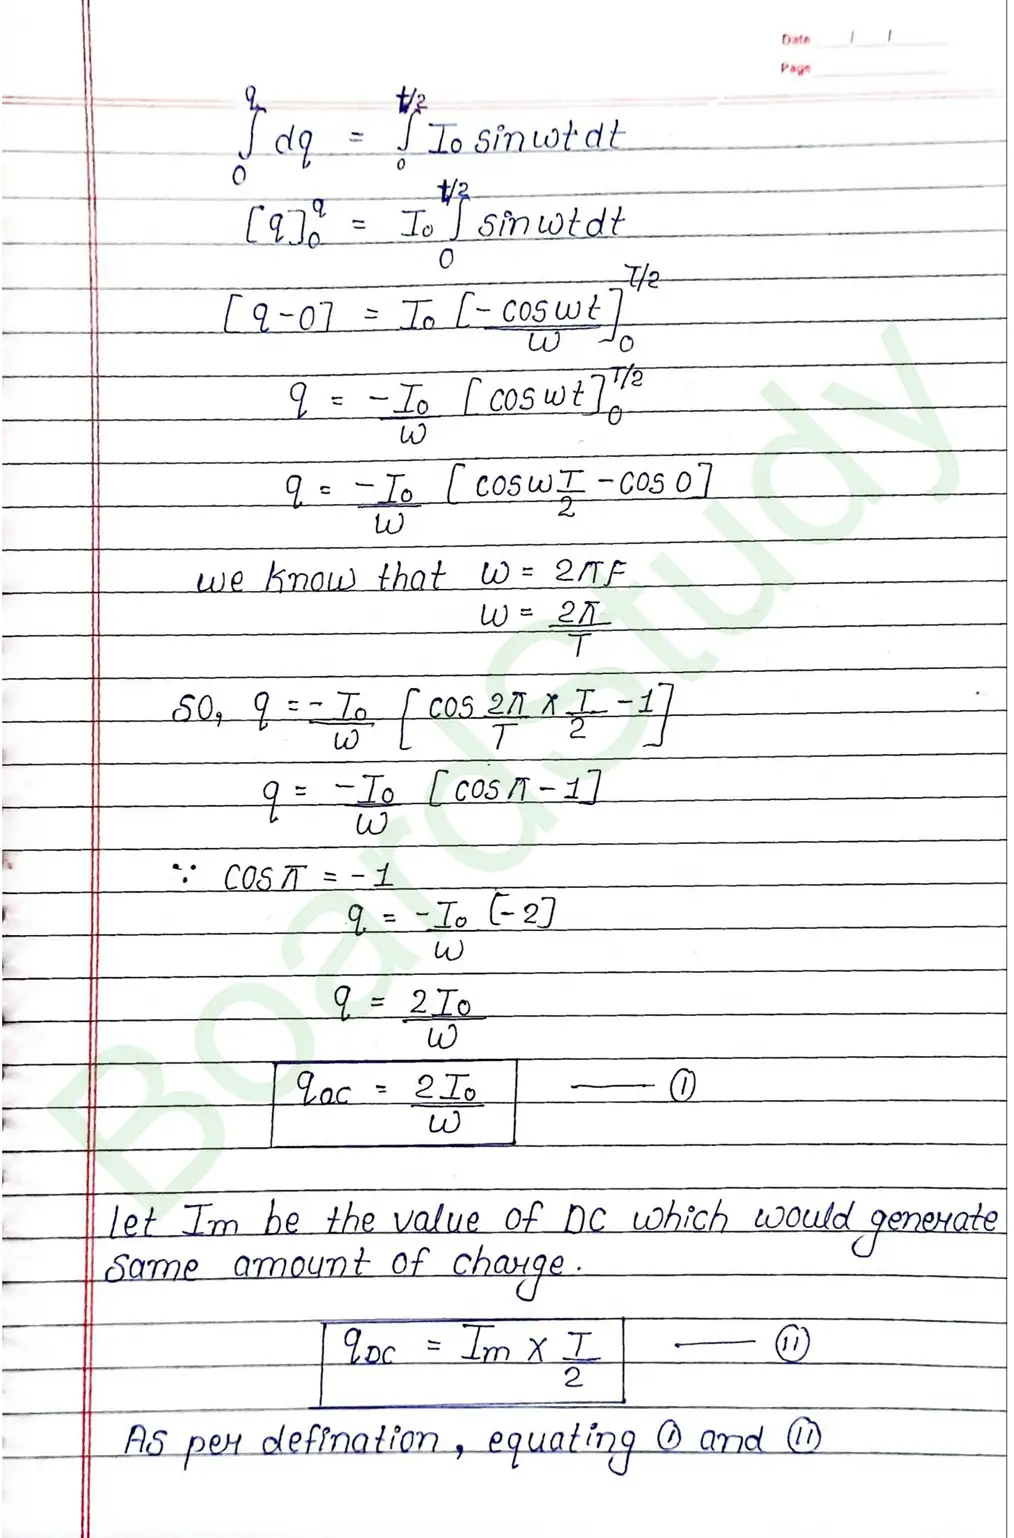 Date / /
Page
∫₀^q dq = ∫₀^t/2 I₀ sinωt dt
[q]₀^q = I₀ ∫₀^t/2 sinωtdt
[q-0] = I₀ [-cosωt/ω]₀^T/2
q = -I₀/ω [cosωt]₀^T/2
q = -I₀/ω [cosω T/2 - cos0]
we know that ω = 2πF
ω = 2π/T
so, q = -I₀/ω [cos 2π/T × T/2 - 1]
q = -I₀/ω [cosπ - 1]
∵ cosπ = -1
q = -I₀/ω [-2]
q = 2I₀/ω
qac = 2I₀/ω —— (i)
let Im be the value of DC which would generate
same amount of charge.
qDC = Im × T/2 —— (ii)
As per defination, equating (i) and (ii)
BoardStudy